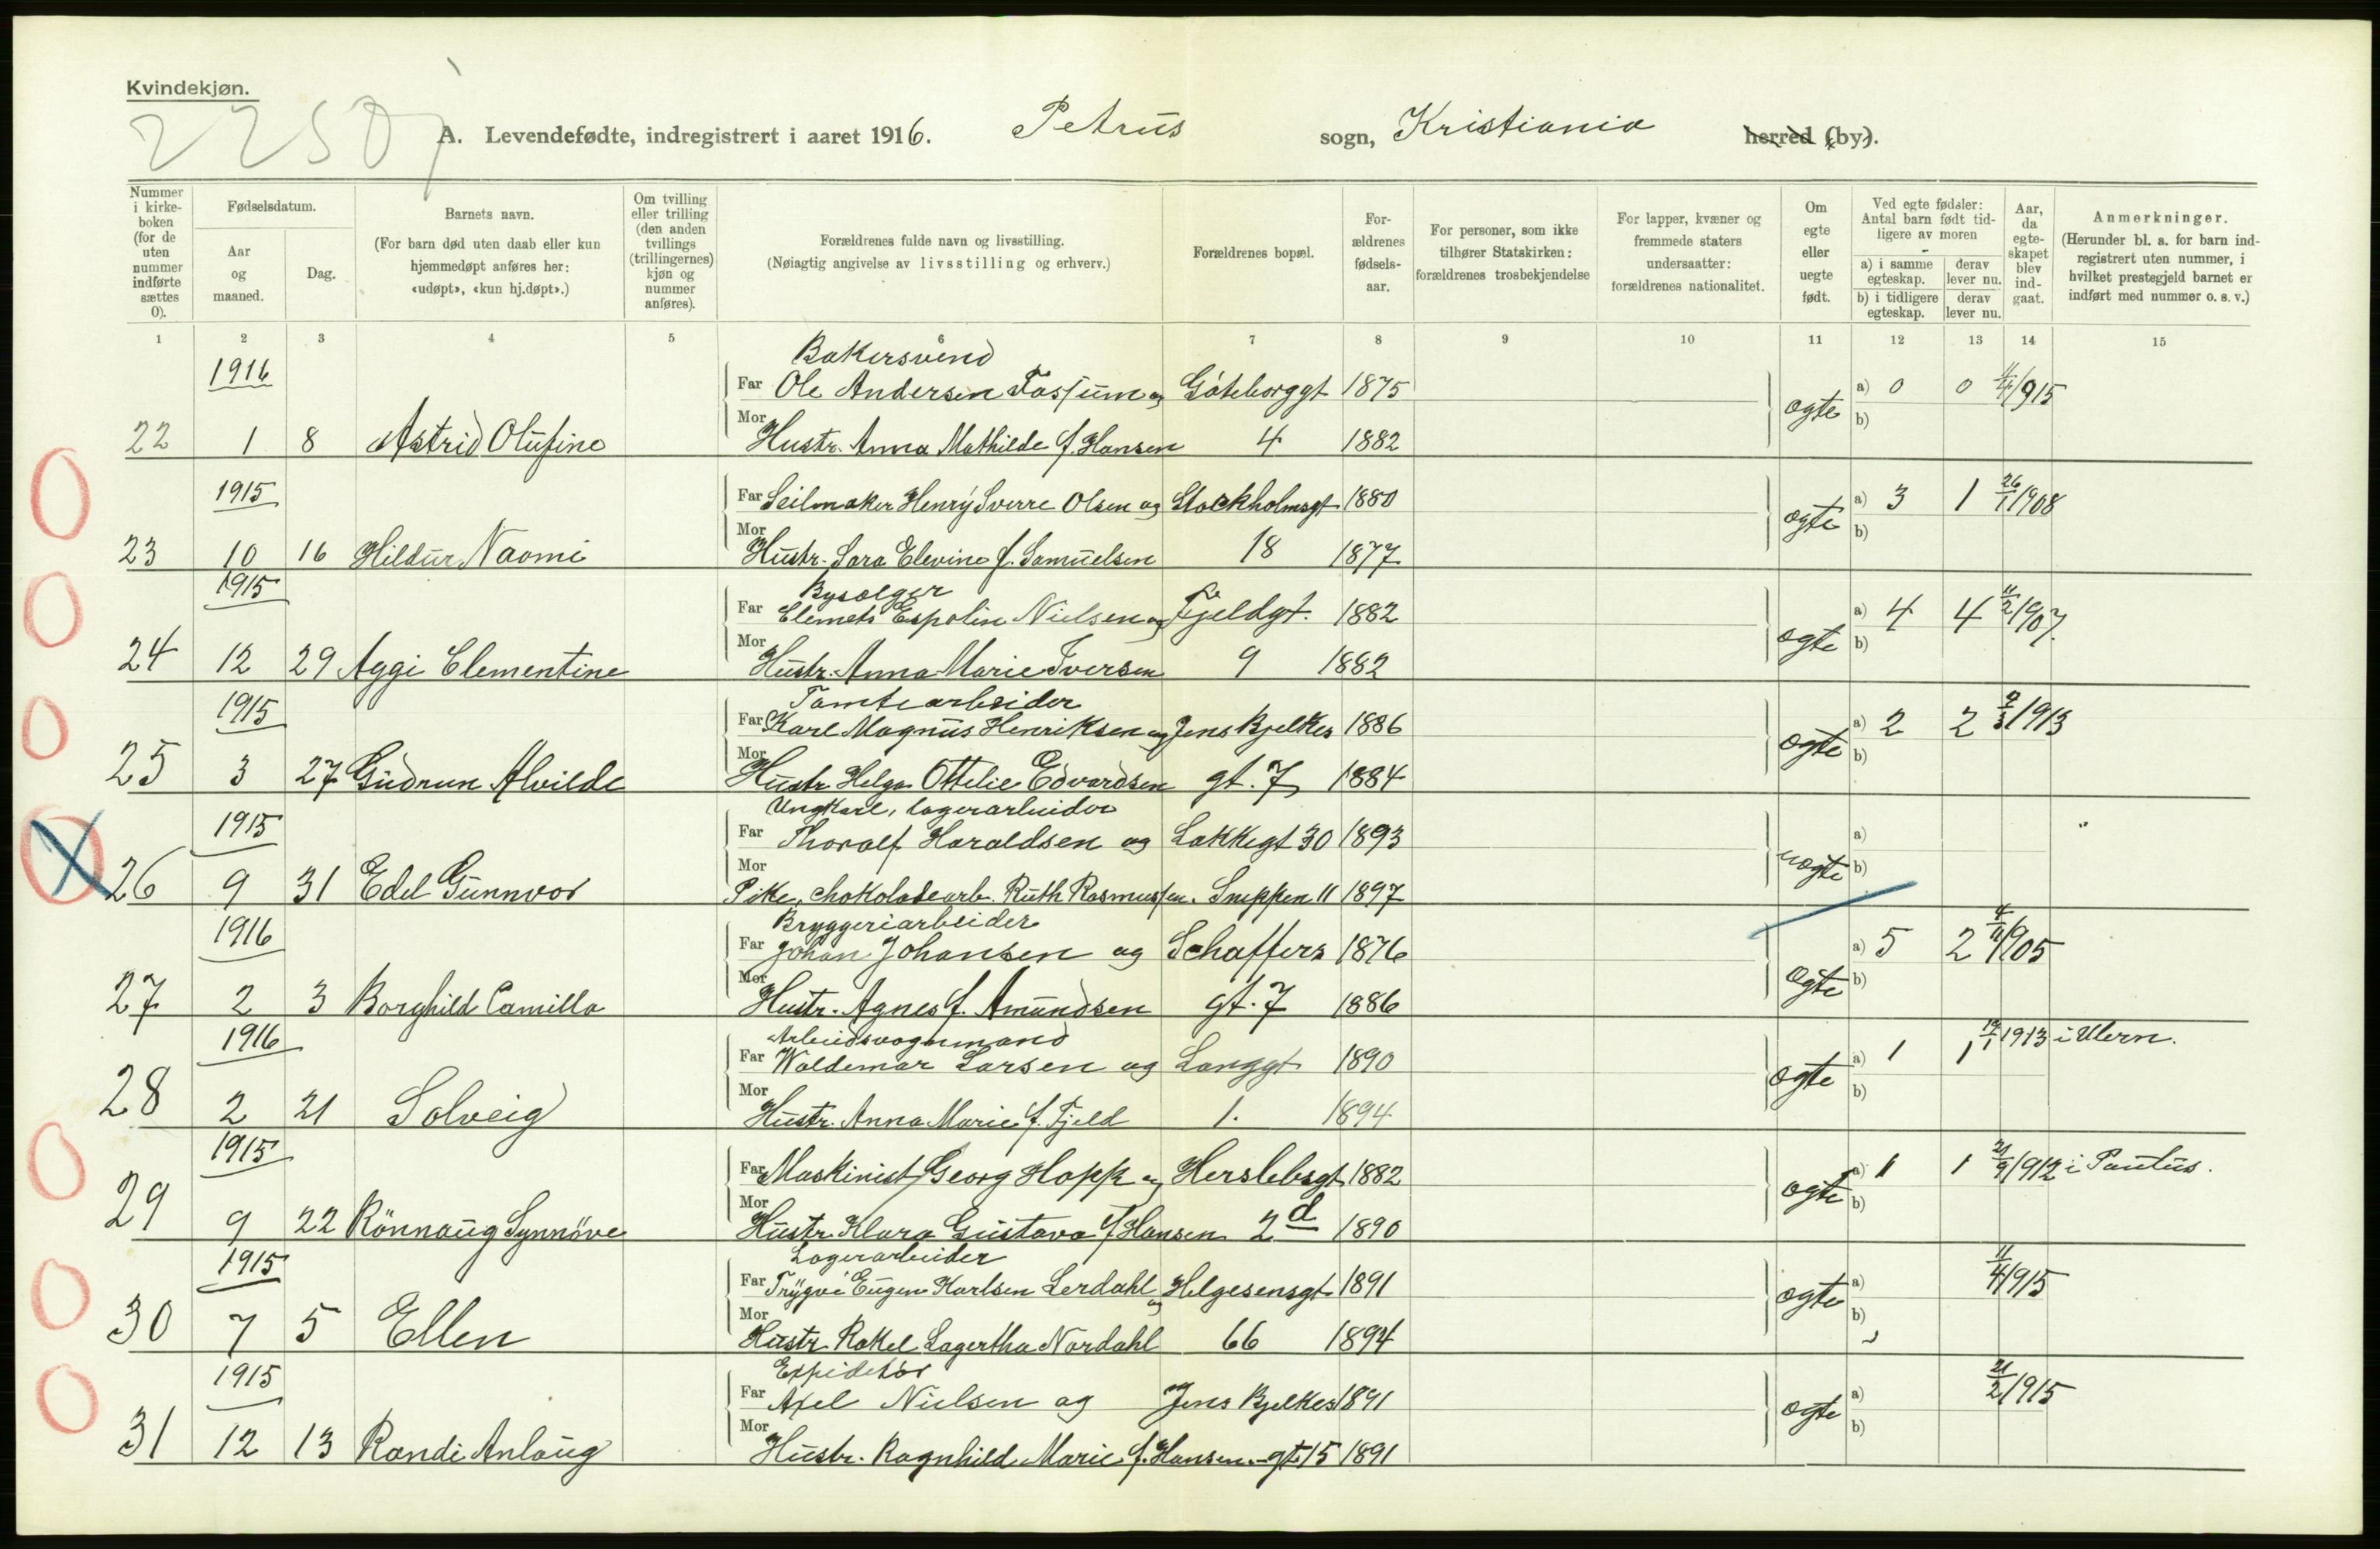 Kvindekjøn.
2250
A. Levendefødte, indregistrert i aaret 1916. Petrus sogn, Kristiania herred (by).
Nummer i kirkeboken (for de uten nummer indførte sættes 0).
Fødselsdatum.
Aar og maaned.
Dag.
Barnets navn.
(For barn død uten daab eller kun hjemmedøpt anføres her: «udøpt», «kun hj.døpt».)
Om tvilling eller trilling (den anden tvillings (trillingernes) kjøn og nummer anføres).
Forældrenes fulde navn og livsstilling.
(Nøiagtig angivelse av livsstilling og erhverv.)
Forældrenes bopæl.
Forældrenes fødselsaar.
For personer, som ikke tilhører Statskirken: forældrenes trosbekjendelse
For lapper, kvæner og fremmede staters undersaatter: forældrenes nationalitet.
Om egte eller uegte født.
Ved egte fødsler: Antal barn født tidligere av moren
a) i samme egteskap. derav lever nu.
b) i tidligere egteskap. derav lever nu.
Aar, da egteskapet blev indgaat.
Anmerkninger.
(Herunder bl. a. for barn indregistrert uten nummer, i hvilket prestegjeld barnet er indført med nummer o. s. v.)
1 2 3 4 5 6 7 8 9 10 11 12 13 14 15
1916 Bakersvend
Far Ole Andersen Fossum og Göteborggt 1875 ægte a) 0 0 11/4/915
22 1 8 Astrid Olufine Mor Hustr. Anna Mathilde f. Hansen 4 1882 b)
1915 Far Seilmaker Henry Sverre Olsen og Stockholmsgt 1880 ægte a) 3 1 26/1 1908
23 10 16 Hildur Naomi Mor Hustr. Sara Elevine f. Samuelsen 18 1877 b)
1915 Bysælger
Far Clemets Espolin Nielsen og Fjeldgt. 1882 ægte a) 4 4 11/2 1907
24 12 29 Aggi Clementine Mor Hustr. Anna Marie Iversen 9 1882 b)
1915 Tomtearbeider
Far Karl Magnus Henriksen og Jens Bjelkes 1886 ægte a) 2 2 2/3 1913
25 3 27 Gudrun Alvilde Mor Hustr Helga Ottelie Edvardsen gt. 7 1884 b)
1915 Ungkarl, lagerarbeider
Far Thoralf Haraldsen og Lakkegt 30 1893 uægte a)
26 9 31 Edel Gunnvor Mor Pike, chokoladearb. Ruth Rasmussen. Sneppen 11 1897 b)
1916 Bryggeriarbeider
Far Johan Johansen og Schaffers 1876 ægte a) 5 2 4/4 1905
27 2 3 Borghild Camilla Mor Hustr. Agnes f. Amundsen gt. 7 1886 b)
1916 Arbeidsvognmand
Far Waldemar Larsen og Langgt 1890 ægte a) 1 1 19/1 1913 i Ullern.
28 2 21 Solveig Mor Hustr. Anna Marie f. Fjeld 1. 1894 b)
1915 Far Maskinist Georg Hopp og Herslebsgt 1882 ægte a) 1 1 21/9 1912 i Paulus.
29 9 22 Rönnaug Synnöve Mor Hustr. Klara Gustava f Hansen 2d 1890 b)
1915 Lagerarbeider
Far Trygve Eugen Karlsen Lerdahl og Helgesensgt 1891 ægte a) 11/4 1915
30 7 5 Ellen Mor Hustr Rakel Lagertha Nordahl 66 1894 b)
1915 Expeditör
Far Axel Nielsen og Jens Bjelkes 1891 ægte a) 21/2 1915
31 12 13 Randi Anlaug Mor Hustr. Ragnhild Marie f. Hansen. gt. 15 1891 b)